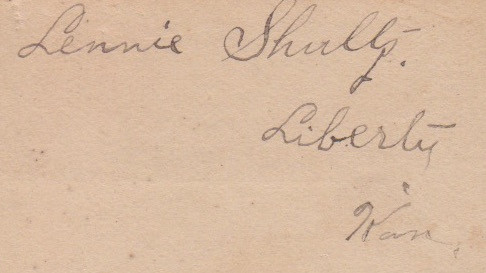 Lennie Shultz.
Liberty
Kan.